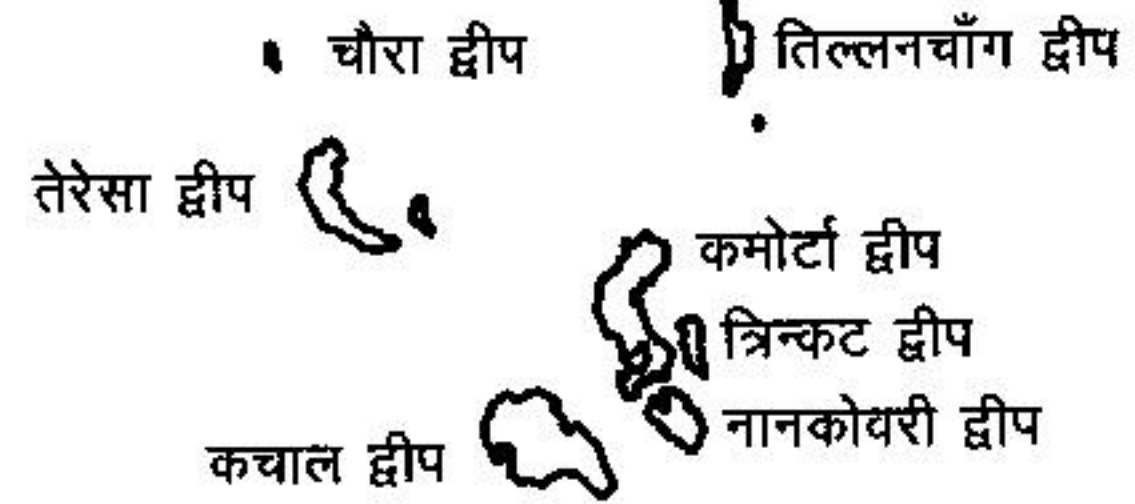 चौरा द्वीप
तिल्लनचाँग द्वीप
तेरेसा द्वीप
कमोर्टा द्वीप
त्रिन्कट द्वीप
नानकोवरी द्वीप
कचाल द्वीप